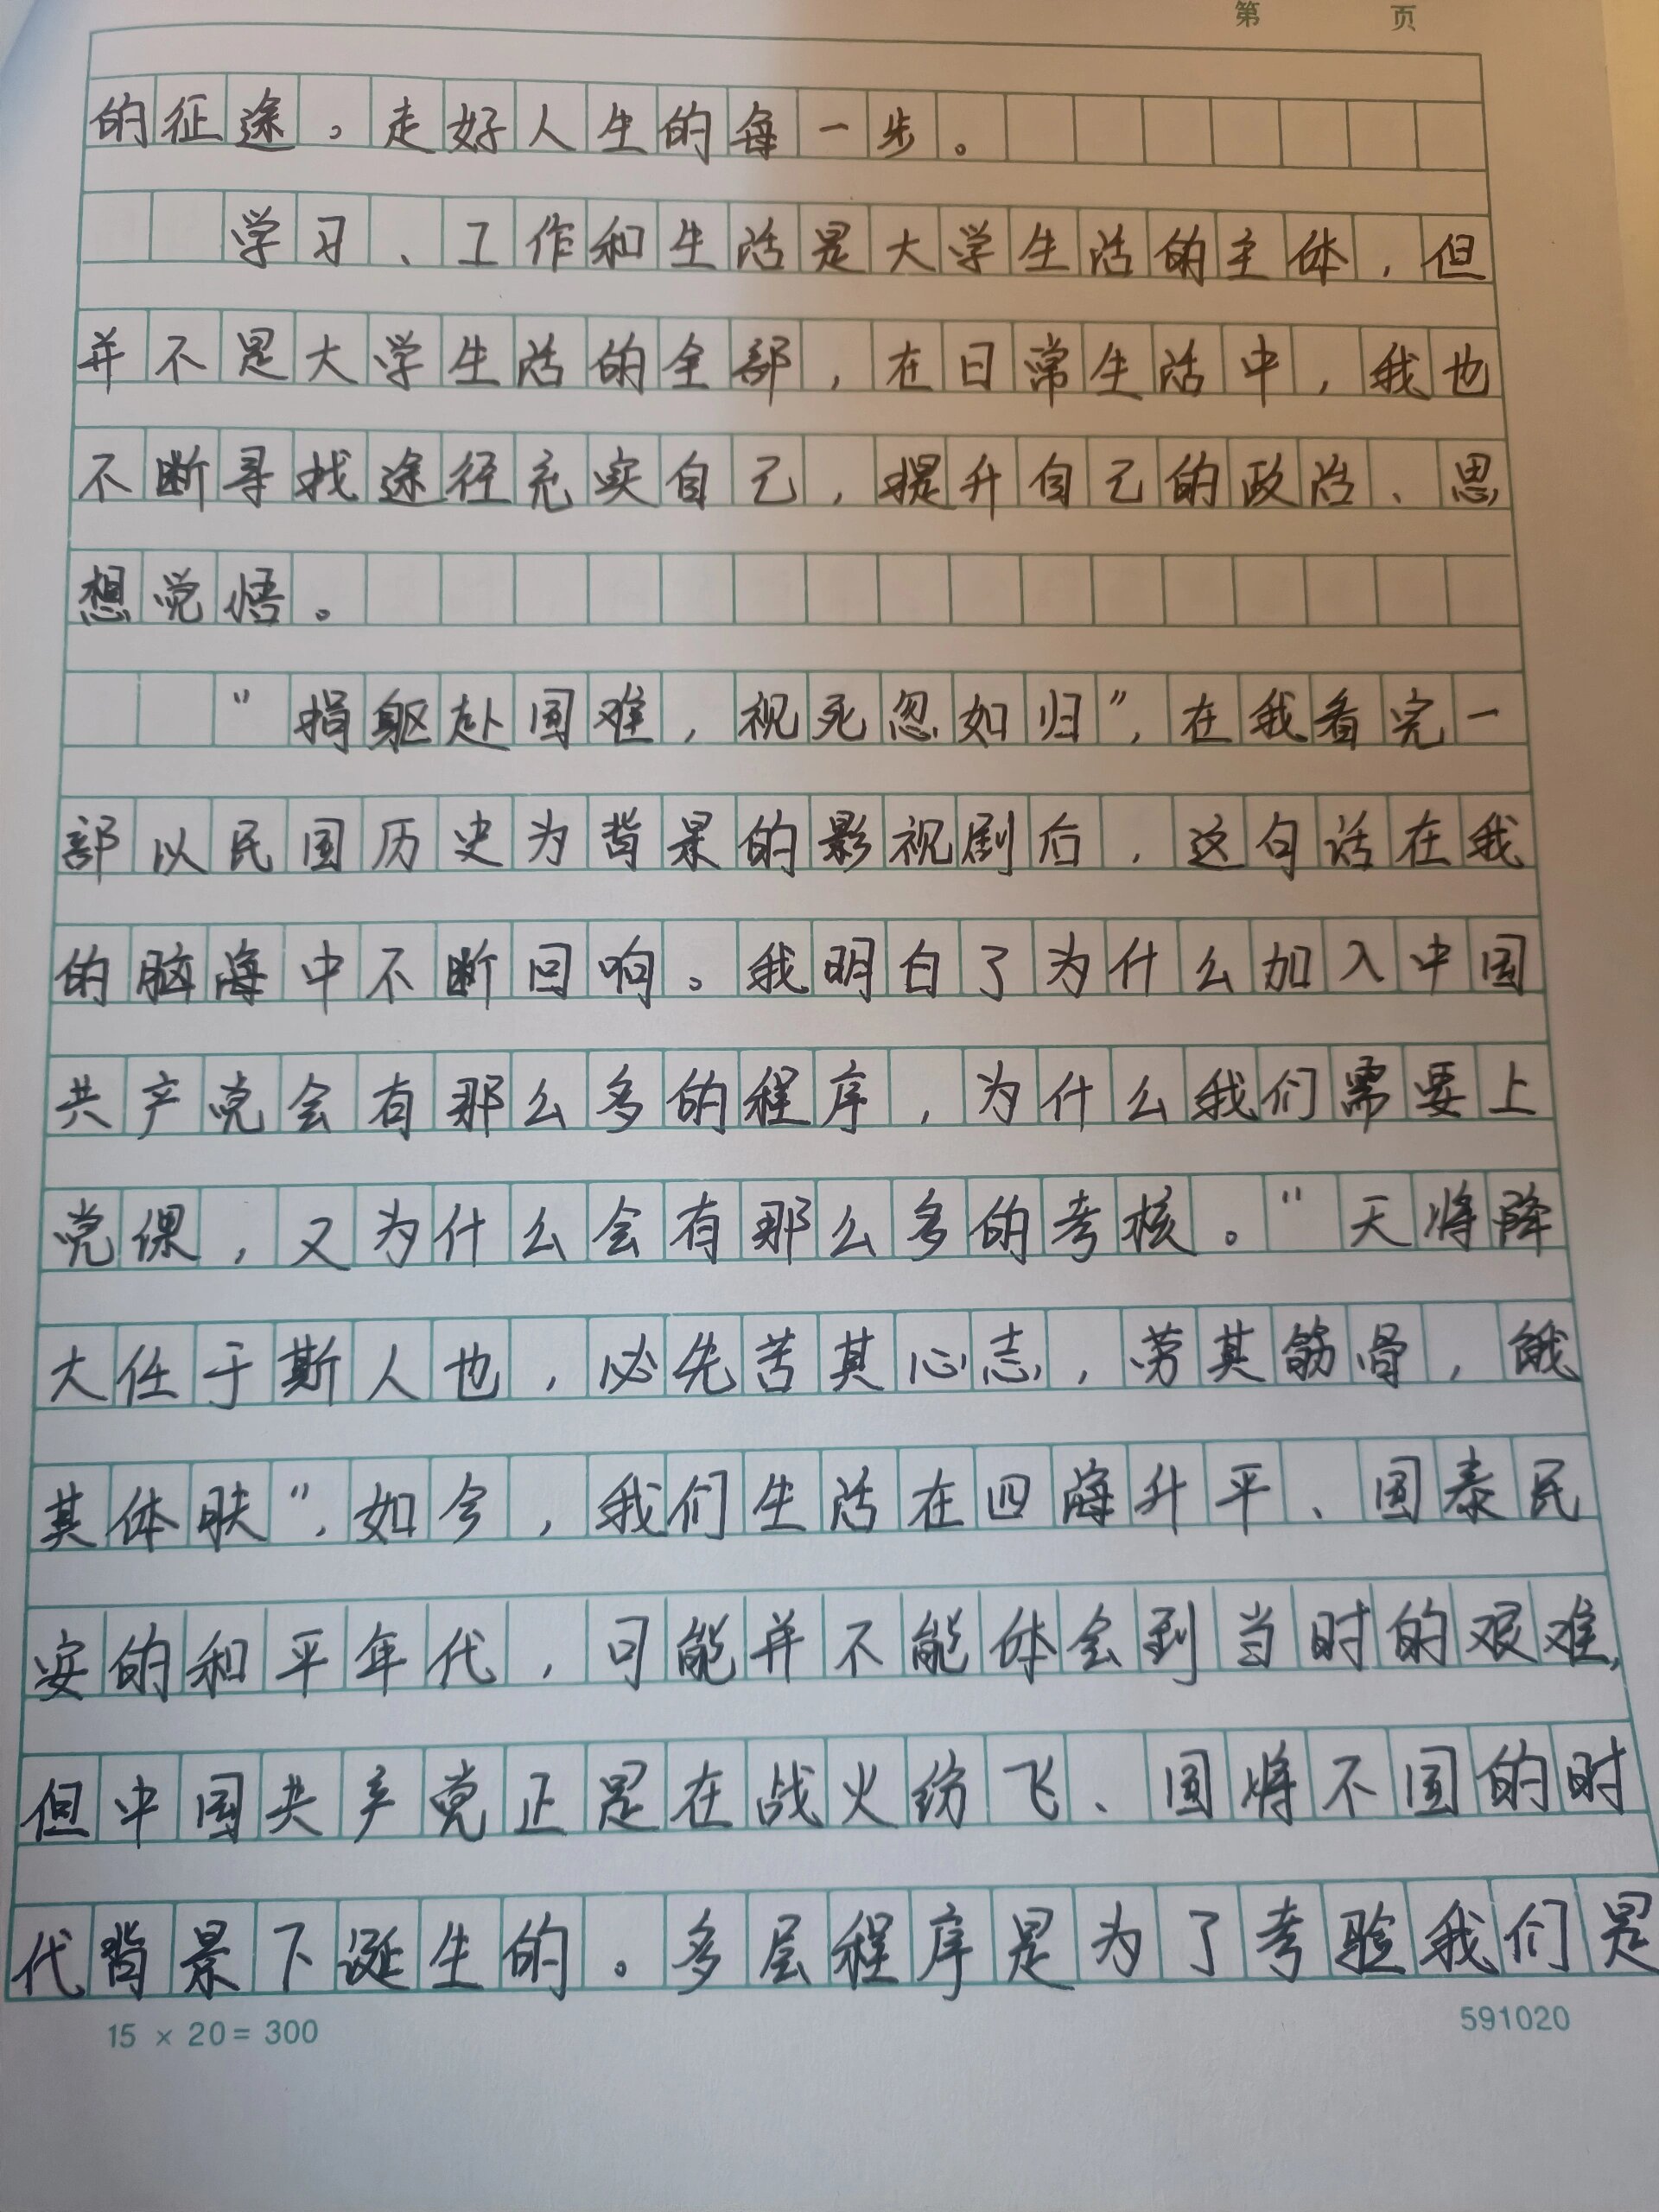 第 页
的征途。走好人生的每一步。
学习、工作和生活是大学生活的主体，但
并不是大学生活的全部，在日常生活中，我也
不断寻找途径充实自己，提升自己的政治、思
想觉悟。
“捐躯赴国难，视死忽如归”，在我看完一
部以民国历史为背景的影视剧后，这句话在我
的脑海中不断回响。我明白了为什么加入中国
共产党会有那么多的程序，为什么我们需要上
党课，又为什么会有那么多的考核。“天将降
大任于斯人也，必先苦其心志，劳其筋骨，饿
其体肤”，如今，我们生活在四海升平、国泰民
安的和平年代，可能并不能体会到当时的艰难，
但中国共产党正是在战火纷飞、国将不国的时
代背景下诞生的。多层程序是为了考验我们是
15 × 20 = 300 591020